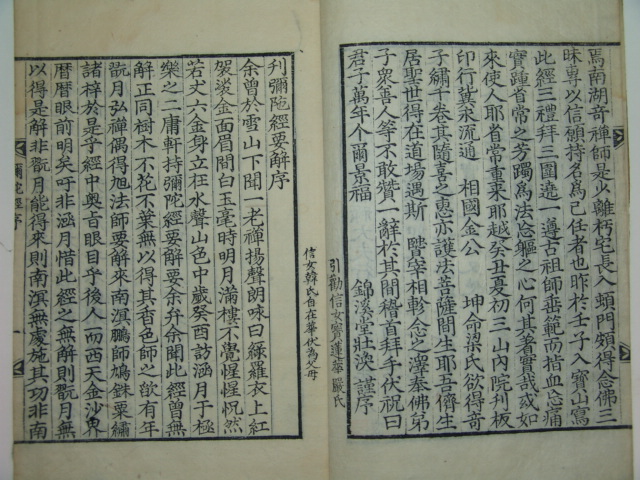 焉南湖奇禪師是少離朽宅長入頓門頗得念佛三
昧專以信願持名爲己任者也昨於壬子入寶山寫
此經三禮拜三圍遶一遵古祖師垂範而指血忘痛
實踵首常之芳躅爲法忘軀之心何其著實哉或如
來使人耶首常重來耶越癸丑夏初三山內院刋板
印行冀永流通 相國金公 坤命梁氏欲得奇
子繡千卷其隨喜之惠亦護法菩薩間生耶吾儕生
居聖世得在道場遇斯 曁宰相軫念之澤奉佛弟
子衆善人等不敢贊一辭於其間稽首拜手伏祝曰
君子萬年介爾景福 錦溪堂壯渙 謹序
引勸信女寶蓮華嚴氏
信女韓氏自在華伏爲父母
刋彌陁經要解序
余曾於雪山下聞一老禪揚聲朗咏曰綠羅衣上紅
袈裟金面眉間白玉毫時明月滿樓不覺惺惺怳然
若丈六金身立在水聲山色中歲癸酉訪涵月于極
樂之二庸軒持彌陀經要解要余弁余聞此經曾無
解正同樹木不花不葉無以得其香色師之歆有年
翫月弘禪偶得旭法師要解來南溟鵬師鳩銖粟繡
諸梓於是乎經中奧旨眼目乎後人一西天金沙界
曆曆眼前明矣吁非涵月惜此經之無解則翫月無
以得是解非翫月能得來則南溟無處施其功非南
彌陀經序